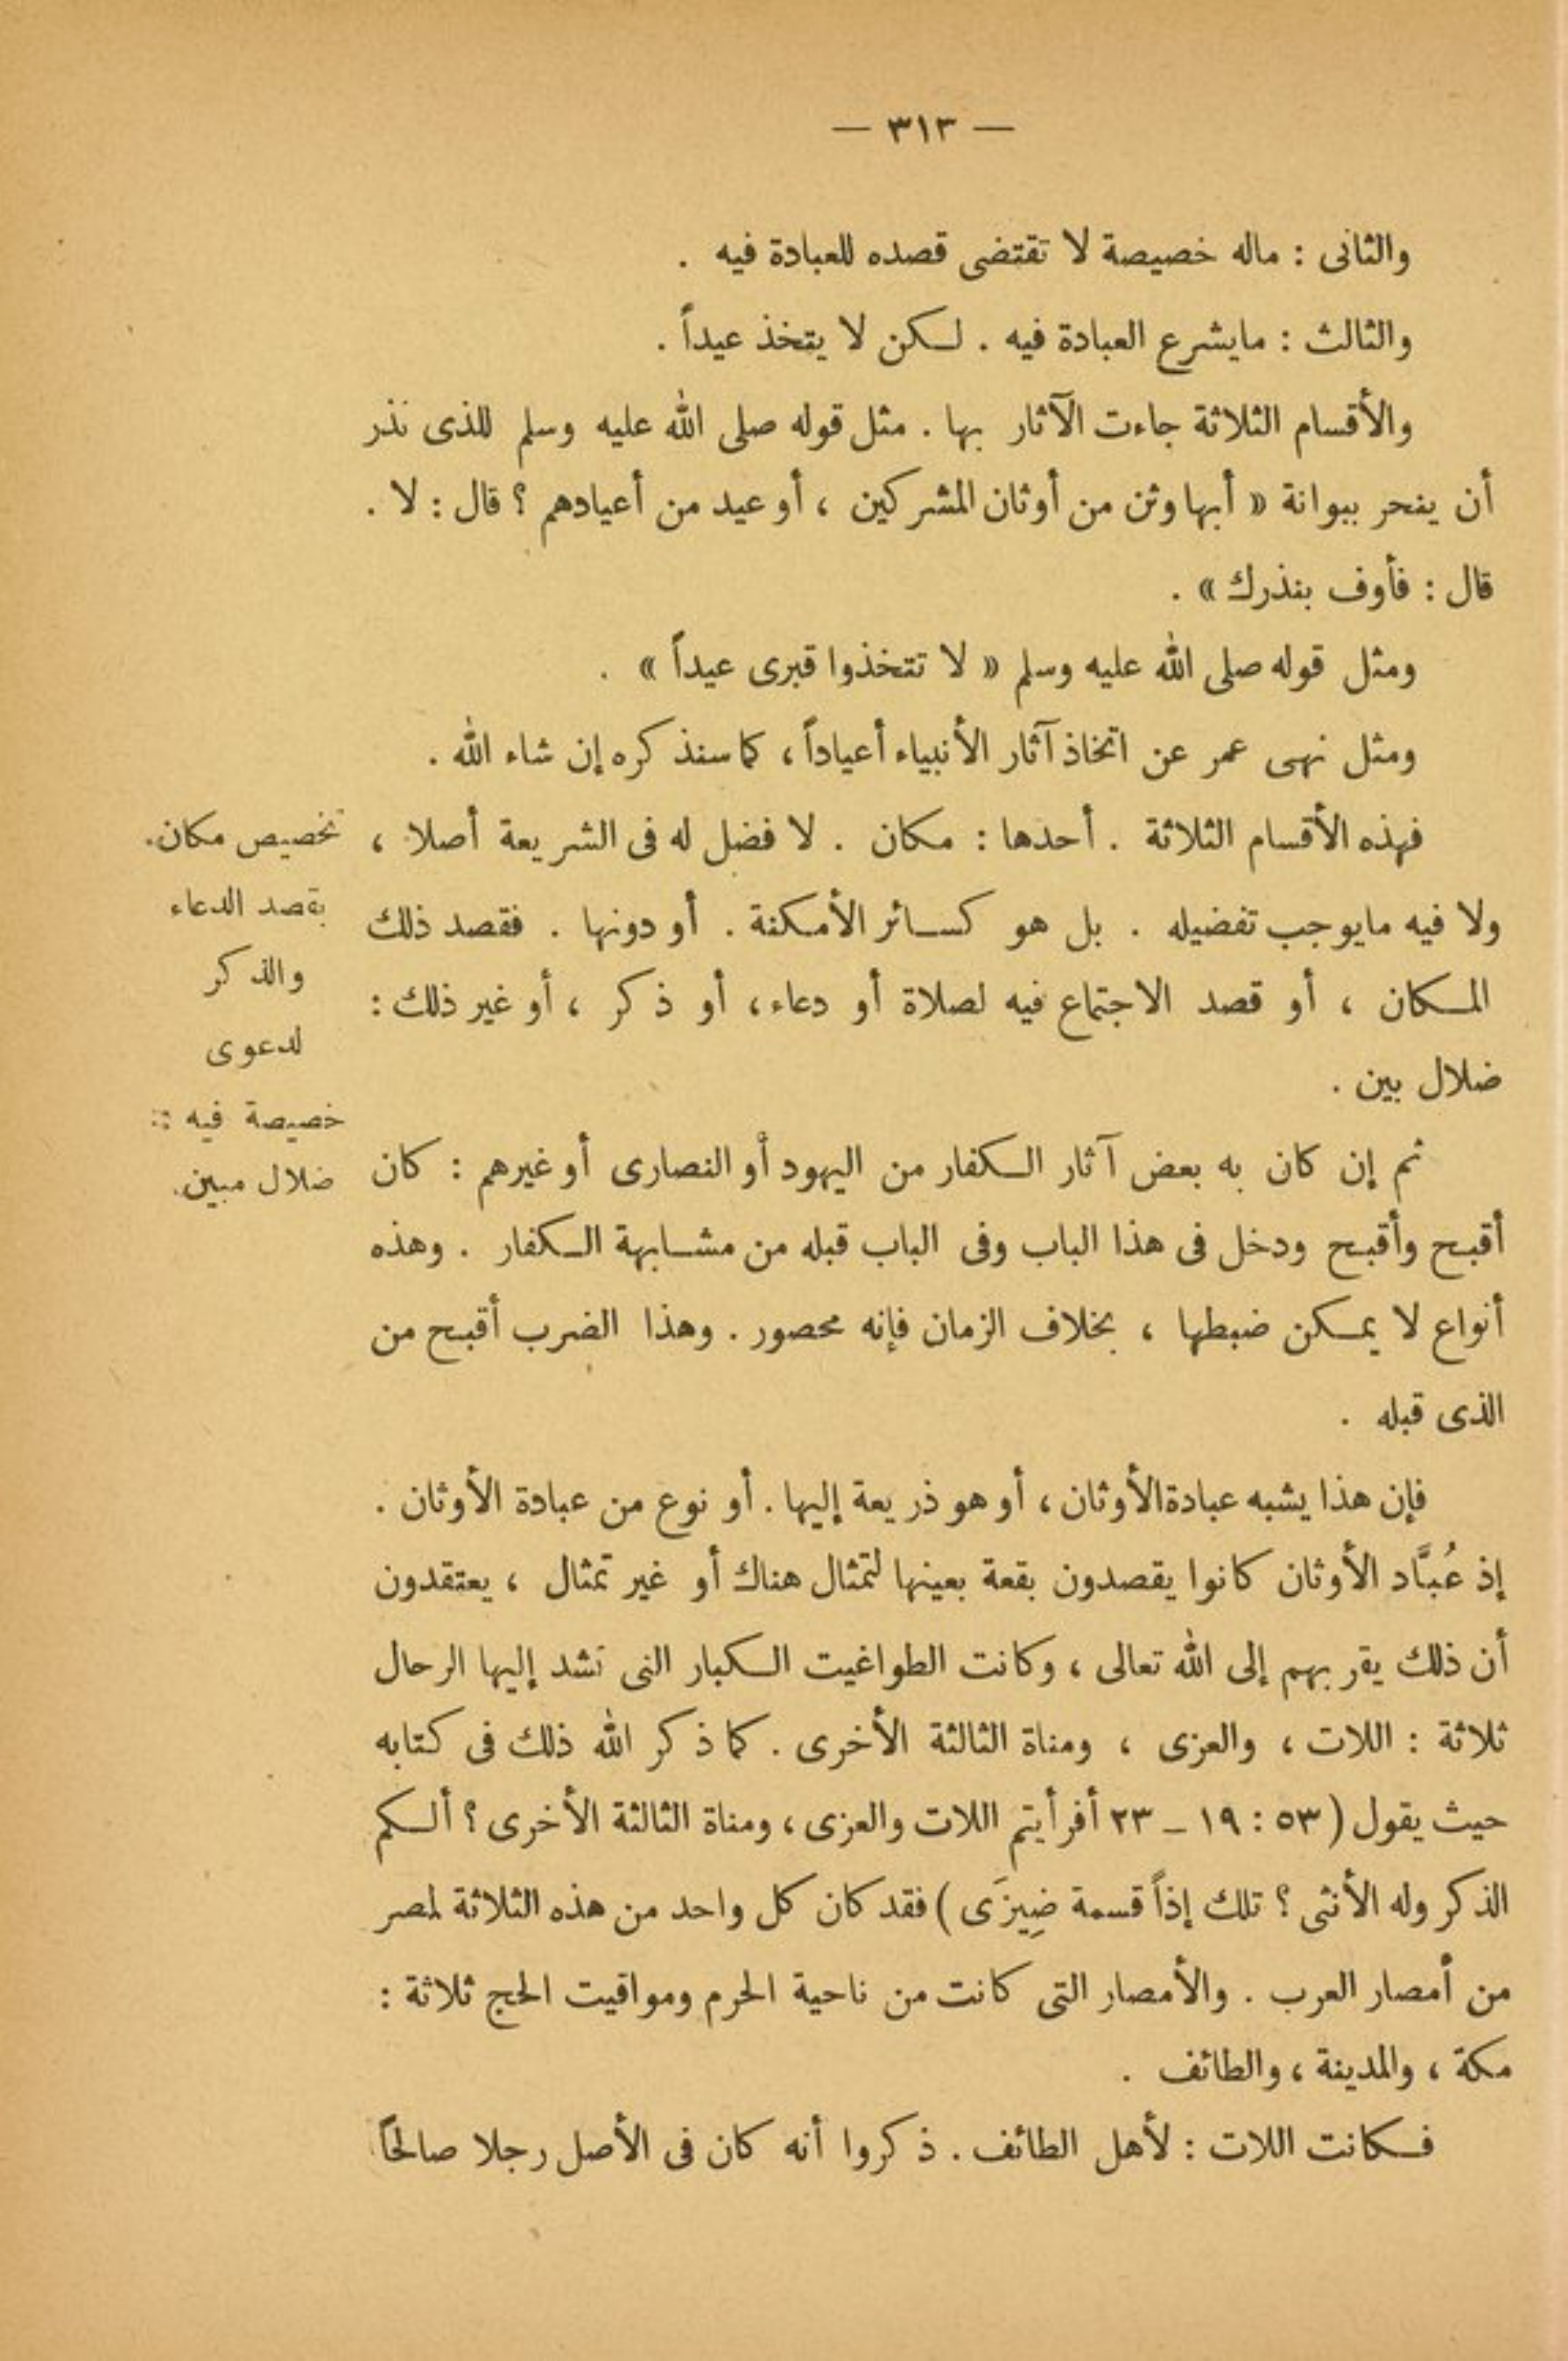 — ٣١٣ —
والثانى : ماله خصيصة لا تقتضى قصده للعبادة فيه .
والثالث : مايشرع العبادة فيه . لكن لا يتخذ عيداً .
والأقسام الثلاثة جاءت الآثار بها . مثل قوله صلى الله عليه وسلم للذى نذر
أن ينحر ببوانة « أبها وثن من أوثان المشركين ، أو عيد من أعيادهم ؟ قال : لا .
قال : فأوف بنذرك » .
ومثل قوله صلى الله عليه وسلم « لا تتخذوا قبرى عيداً » .
ومثل نهى عمر عن اتخاذ آثار الأنبياء أعياداً ، كما سنذكره إن شاء الله .
فهذه الأقسام الثلاثة . أحدها : مكان . لا فضل له فى الشريعة أصلا ،
ولا فيه مايوجب تفضيله . بل هو كسائر الأمكنة . أو دونها . فقصد ذلك
المكان ، أو قصد الاجتماع فيه لصلاة أو دعاء ، أو ذكر ، أو غير ذلك :
ضلال بين .
تخصيص مكان
بقصد الدعاء
والذكر
لدعوى
خصيصة فيه :
ضلال مبين
ثم إن كان به بعض آثار الكفار من اليهود أو النصارى أو غيرهم : كان
أقبح وأقبح ودخل فى هذا الباب وفى الباب قبله من مشابهة الكفار . وهذه
أنواع لا يمكن ضبطها ، بخلاف الزمان فإنه محصور . وهذا الضرب أقبح من
الذى قبله .
فإن هذا يشبه عبادة الأوثان ، أو هو ذريعة إليها . أو نوع من عبادة الأوثان .
إذ عُبَّاد الأوثان كانوا يقصدون بقعة بعينها لتمثال هناك أو غير تمثال ، يعتقدون
أن ذلك يقربهم إلى الله تعالى ، وكانت الطواغيت الكبار التى تشد إليها الرحال
ثلاثة : اللات ، والعزى ، ومناة الثالثة الأخرى . كما ذكر الله ذلك فى كتابه
حيث يقول ( ٥٣ : ١٩ – ٢٣ أفرأيتم اللات والعزى ، ومناة الثالثة الأخرى ؟ ألكم
الذكر وله الأنثى ؟ تلك إذاً قسمة ضِيزَى ) فقد كان كل واحد من هذه الثلاثة لمصر
من أمصار العرب . والأمصار التى كانت من ناحية الحرم ومواقيت الحج ثلاثة :
مكة ، والمدينة ، والطائف .
فكانت اللات : لأهل الطائف . ذكروا أنه كان فى الأصل رجلا صالحاً